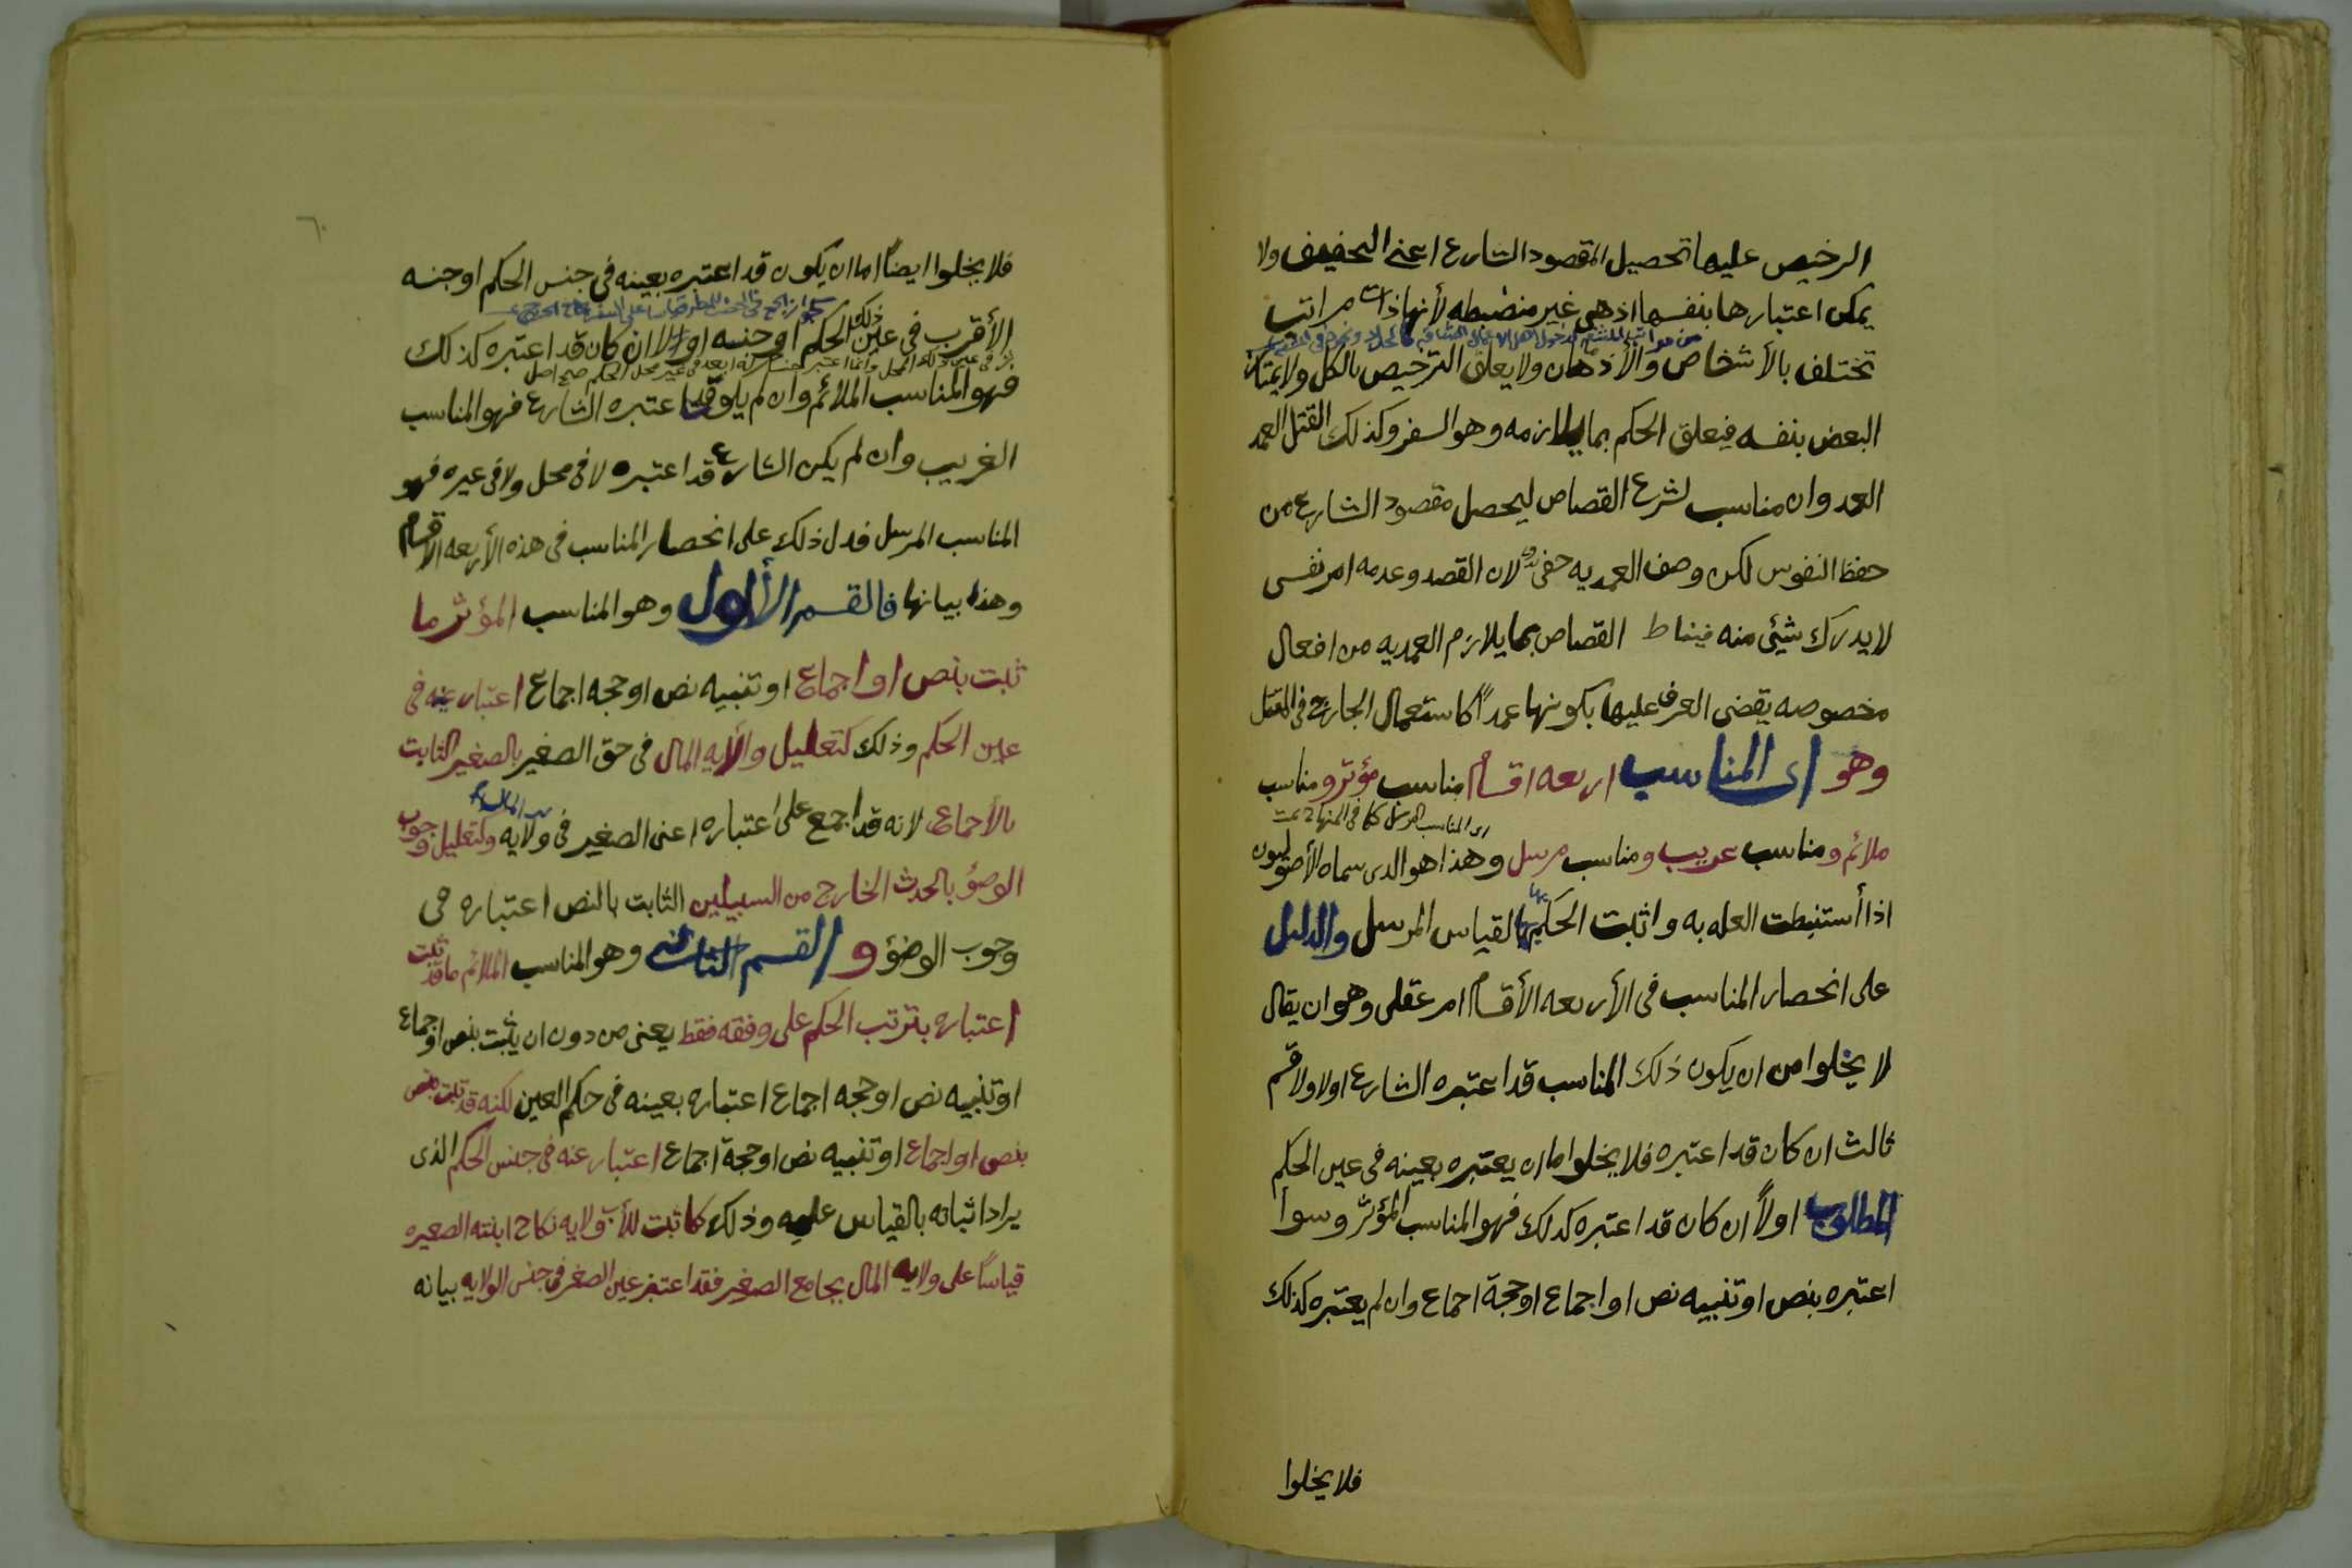 الرخيص عليها تحصيل المقصود الشارع اعني التخفيف ولا
يمكن اعتبارها بنفسها اذ هي غير منضبطه لأنها ذات مراتب
تختلف بالأشخاص والأذهان ولا يعلق الترخيص بالكل ولا يمتاز
البعض بنفسه فيعلق الحكم بما يلازمه وهو السفر وكذلك القتل العمد
العدوان مناسب لشرع القصاص ليحصل مقصود الشارع من
حفظ النفوس لكن وصف العمديه خفي لان القصد وعدمه امر نفسي
لا يدرك شيئ منه فيناط القصاص بما يلازم العمديه من افعال
مخصوصه يقضي العرف عليها بكونها عمداً كاستعمال الجارح في المقتل
وهو اى المناسب اربعه اقسام مناسب مؤثر ومناسب
اى المناسب المرسل كما في المنهاج تمت
ملائم ومناسب غريب ومناسب مرسل وهذا هو الذي سماه الأصوليون
اذا أستنبطت العله به واثبت الحكم بها القياس المرسل والدليل
على انحصار المناسب في الأربعه الأقسام امر عقلي وهو ان يقال
لا يخلوا من ان يكون ذلك المناسب قد اعتبره الشارع اولا ولا قسم
ثالث ان كان قد اعتبره فلا يخلوا اما ان يعتبره بعينه في عين الحكم
المطلوب اولاً ان كان قد اعتبره كذلك فهو المناسب المؤثر وسوا
اعتبره بنص او تنبيه نص او اجماع او حجة اجماع وان لم يعتبره كذلك
فلا يخلوا
٦٠
فلا يخلوا ايضاً اما ان يكون قد اعتبره بعينه في جنس الحكم او جنسه
الأقرب في عين ذلك الحكم او جنسه او لا ان كان قد اعتبره كذلك
فهو المناسب الملائم وان لم يكن قد اعتبره الشارع فهو المناسب
الغريب وان لم يكن الشارع قد اعتبره لا في محل ولا في غيره فهو
المناسب المرسل فدل ذلك على انحصار المناسب في هذه الأربعه الاقسام
وهذا بيانها فالقسم الأول وهو المناسب المؤثر ما
ثبت بنص او اجماع او تنبيه نص او حجه اجماع اعتبار عينه في
عين الحكم وذلك كتعليل ولأية المال في حق الصغير بالصغير الثابت
بالأجماع لانه قد اجمع على اعتباره اعنى الصغير في ولايه المال وكتعليل وجوب
الوضؤ بالحدث الخارج من السبيلين الثابت بالنص اعتباره في
وجوب الوضؤ و القسم الثاني وهو المناسب الملائم ما قد ثبت
اعتباره بترتب الحكم على وفقه فقط يعنى من دون ان يثبت بنص او اجماع
او تنبيه نص او حجه اجماع اعتباره بعينه في حكم العين لكنه قد ثبت بنص
بنص او اجماع او تنبيه نص او حجة اجماع اعتبار عنه في جنس الحكم الذى
يراد اثباته بالقياس عليه وذلك كما ثبت للأب ولايه نكاح ابنته الصغيره
قياساً على ولايه المال بجامع الصغير فقد اعتبر عين الصغر في جنس الولايه بيانه